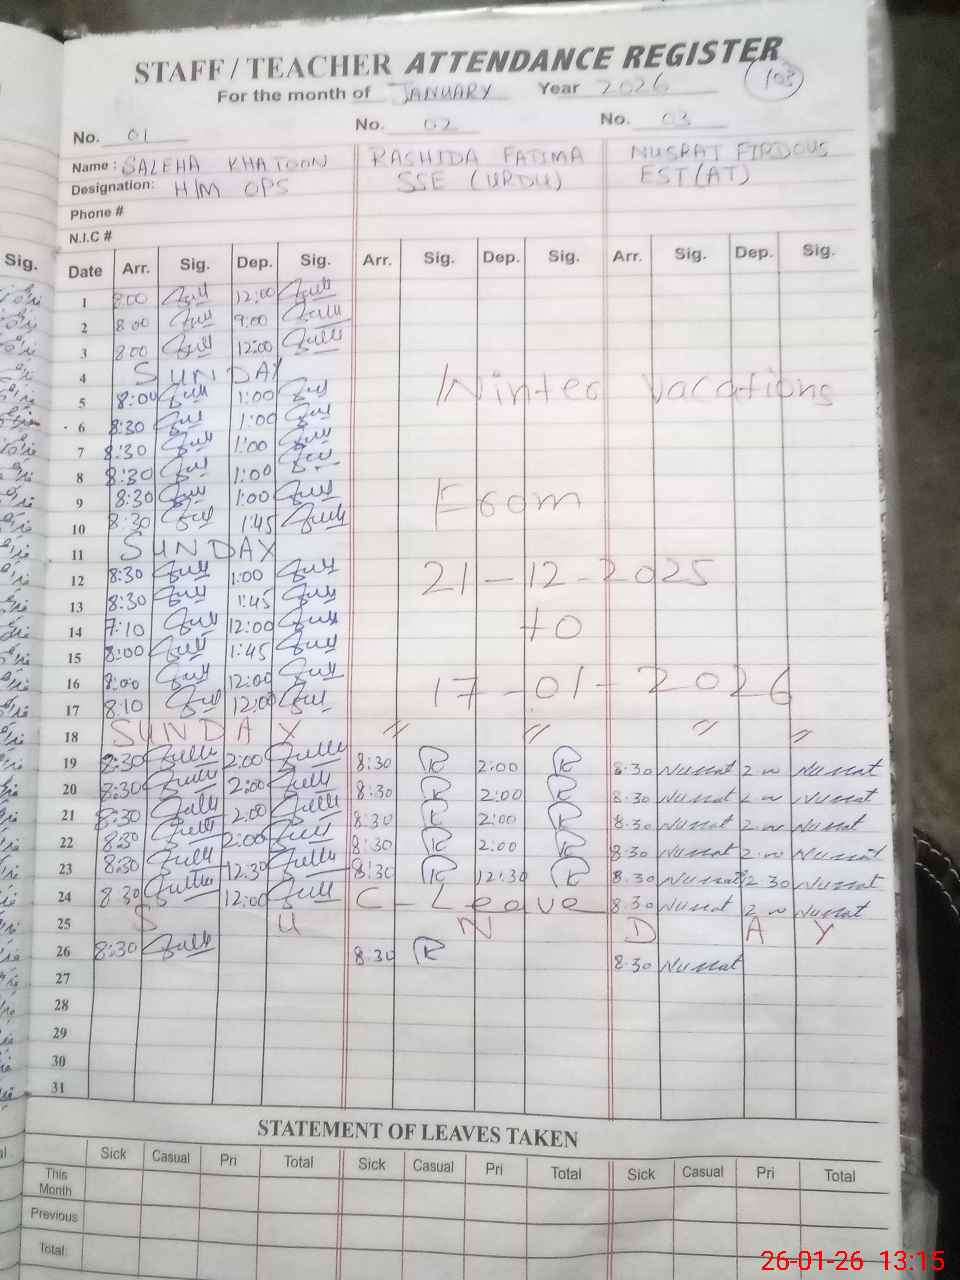 STAFF / TEACHER ATTENDANCE REGISTER
For the month of JANUARY Year 2026 103
No. 01 No. 02 No. 03
Name : SALEHA KHATOON RASHIDA FATIMA NUSRAT FIRDOUS
Designation: H/M OPS SSE (URDU) EST(AT)
Phone #
N.I.C #
Sig. Date Arr. Sig. Dep. Sig. Arr. Sig. Dep. Sig. Arr. Sig. Dep. Sig.
1 8:00 12:00
2 8:00 9:00
3 8:00 12:00
4 SUNDAY
5 8:00 1:00 Winter vacations
6 8:30 1:00
7 8:30 1:00
8 8:30 1:00
9 8:30 1:00 From
10 8:30 1:45
11 SUNDAY
12 8:30 1:00 21-12-2025
13 8:30 1:45
14 7:10 12:00 to
15 8:00 1:45
16 8:00 12:00 17-01-2026
17 8:10 12:00
18 SUNDAY " " " "
19 8:30 2:00 8:30 R 2:00 R 8:30 Nusrat 2:00 Nusrat
20 8:30 2:00 8:30 R 2:00 R 8:30 Nusrat 2:00 Nusrat
21 8:30 2:00 8:30 R 2:00 R 8:30 Nusrat 2:00 Nusrat
22 8:30 2:00 8:30 R 2:00 R 8:30 Nusrat 2:00 Nusrat
23 8:30 12:30 8:30 R 12:30 R 8:30 Nusrat 12:30 Nusrat
24 8:30 12:00 C-Leave 8:30 Nusrat 2:00 Nusrat
25 S U N D A Y
26 8:30 8:30 R 8:30 Nusrat
27
28
29
30
31
STATEMENT OF LEAVES TAKEN
Sick Casual Pri Total Sick Casual Pri Total Sick Casual Pri Total
This Month
Previous
Total:
26-01-26 13:15